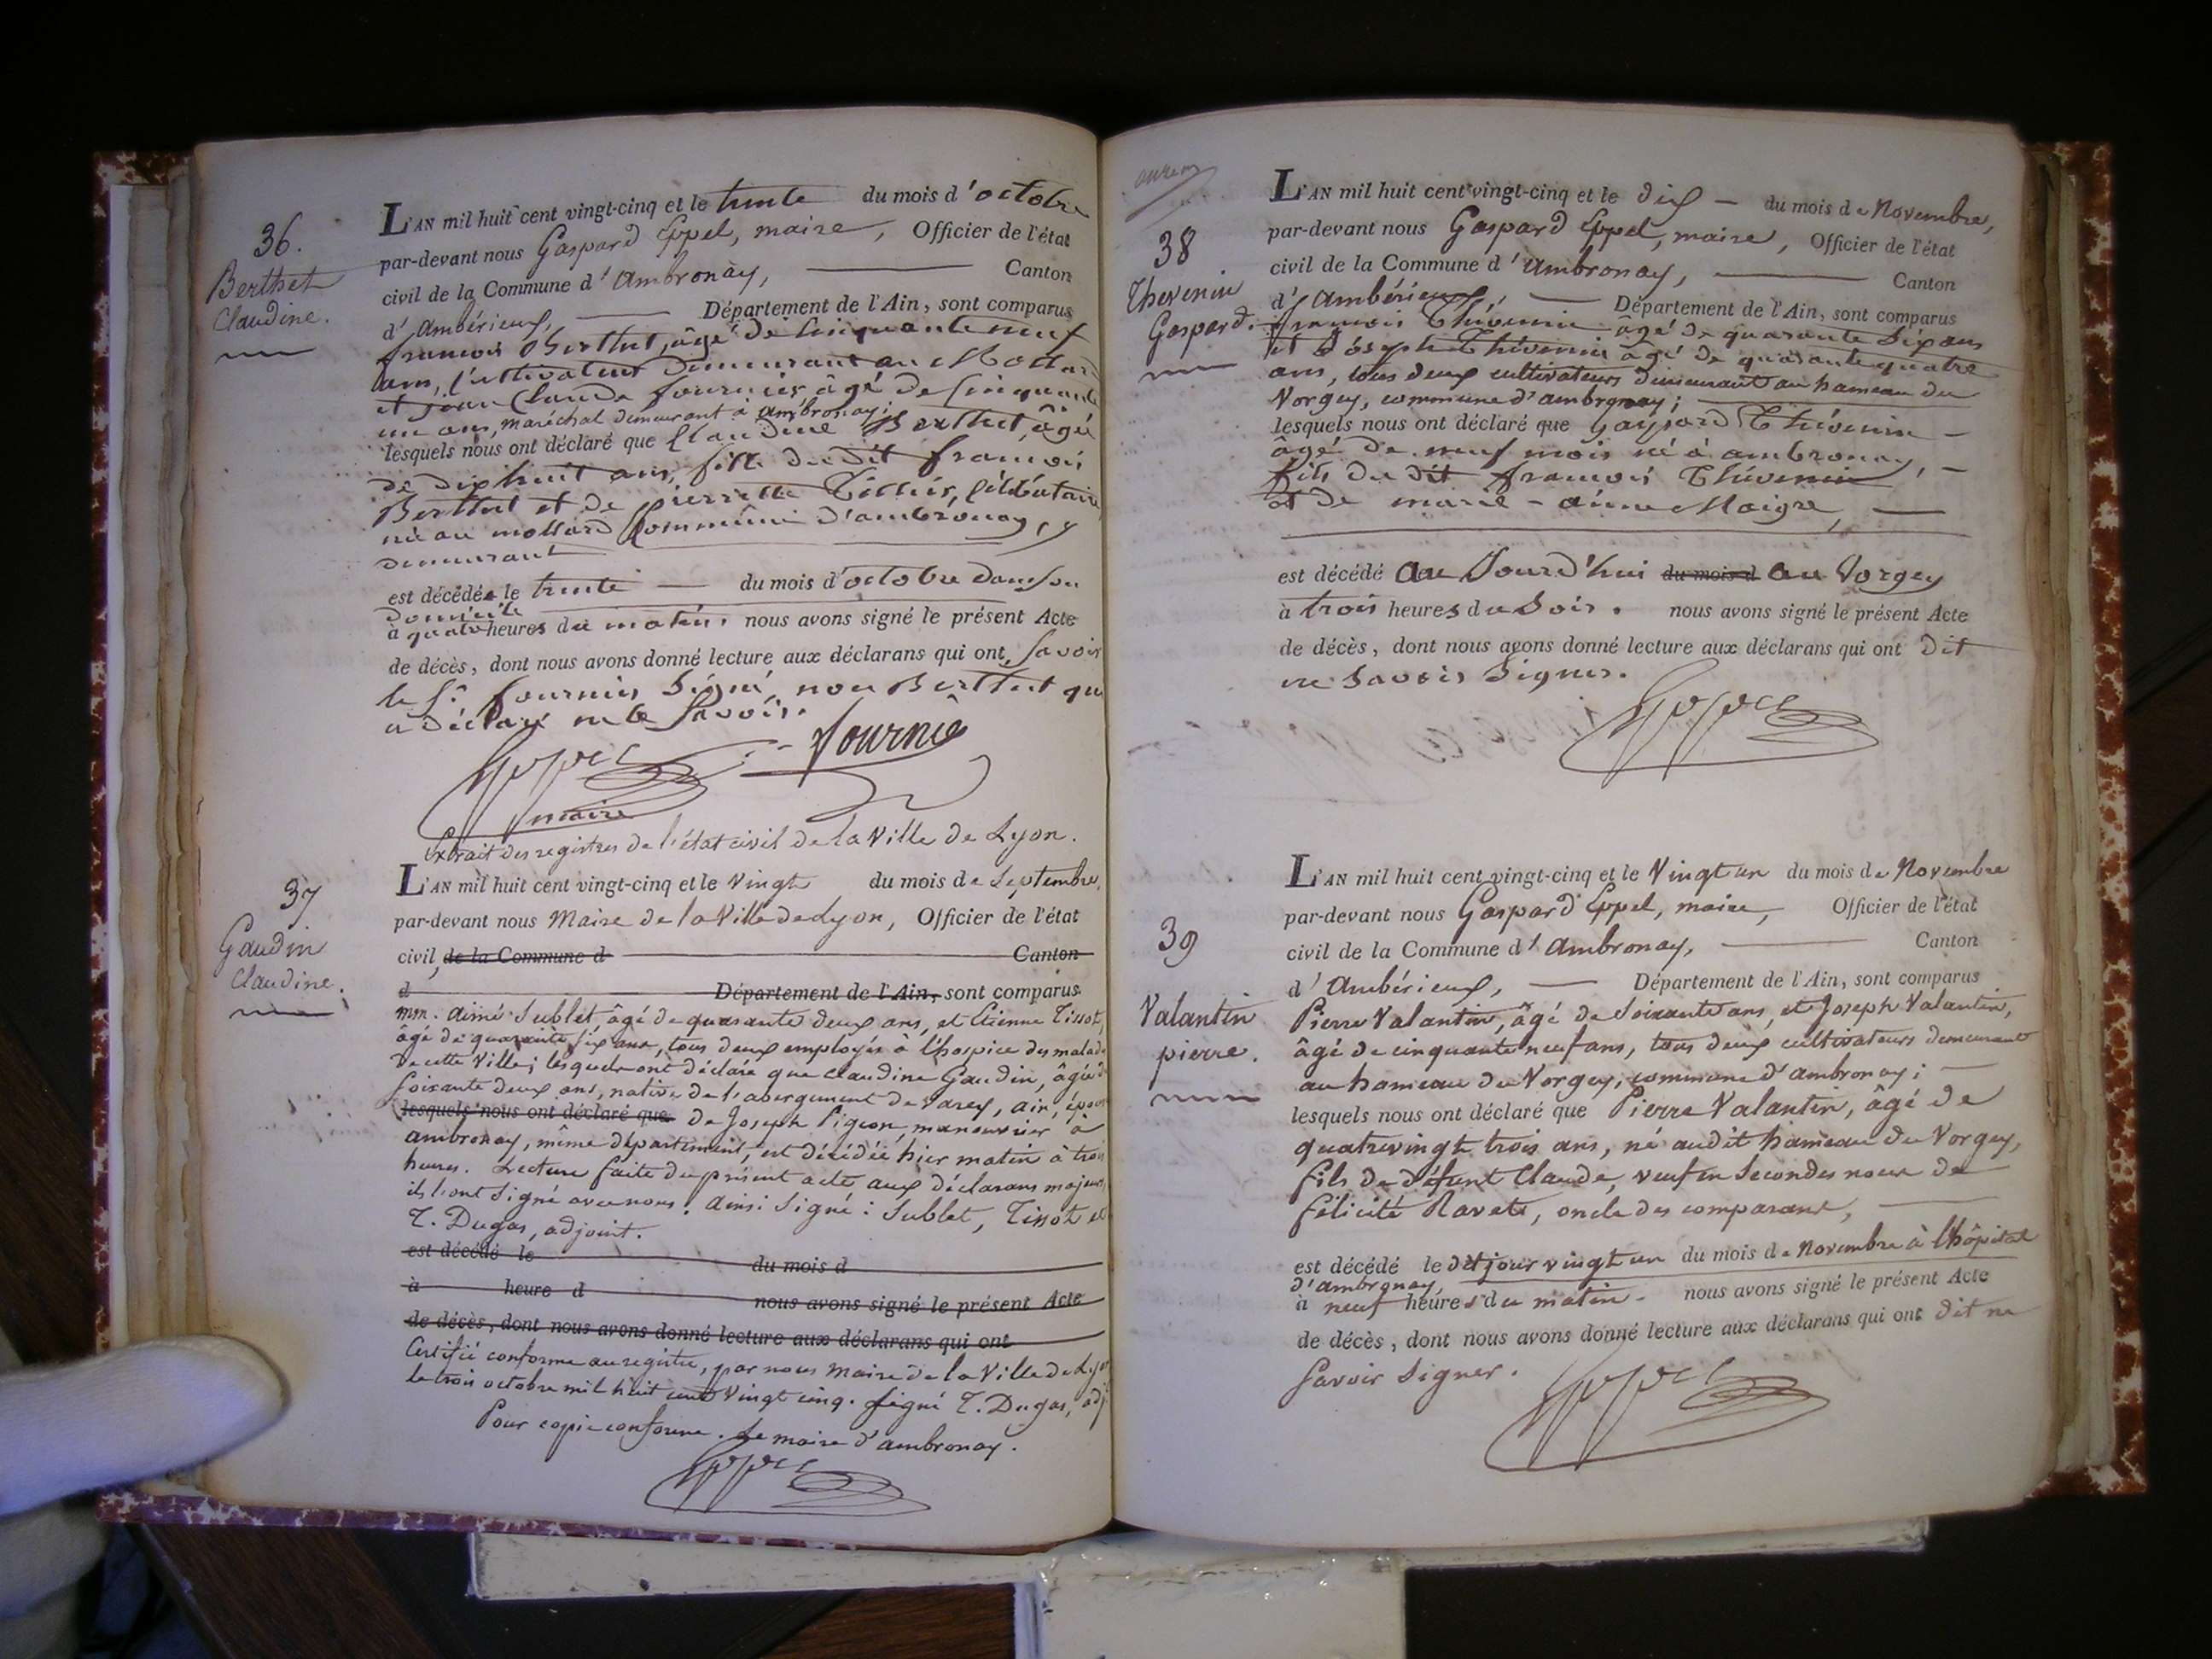 36.
Berthet
Claudine.
L'AN mil huit cent vingt-cinq et le trente du mois d'octobre
par-devant nous Gaspard Eppel, maire, Officier de l'état
civil de la Commune d'Ambronay, Canton
d'Ambérieux, Département de l'Ain, sont comparus
francois Berthet, âgé de Cinquante neuf
ans, Cultivateur demeurant au Mollard
et jean Claude fournier, âgé de Cinquante
un ans, maréchal demeurant à ambronay;
lesquels nous ont déclaré que Claudine Berthet, âgée
de dix huit ans, fille du dit francois
Berthet et de pierrette Tillier, Célibataire
née au mollard Commune d'ambronay, y
demeurant
est décédée le trente du mois d'octobre dans son
domicile
à quatre heures du matin, nous avons signé le présent Acte
de décès, dont nous avons donné lecture aux déclarans qui ont, Savoir
le Sr. fournier Signé, non Berthet qui
a déclaré ne le Savoir.
Eppel fournié
maire
37
Gaudin
Claudine.
Extrait des registres de l'état civil de la Ville de Lyon.
L'AN mil huit cent vingt-cinq et le Vingt du mois de Septembre,
par-devant nous Maire de la Ville de Lyon, Officier de l'état
civil, de la Commune d Canton
d Département de l'Ain, sont comparus
mm. aimé Sublet âgé de quarante deux ans, et Etienne Tissot,
âgé de quarante six ans, tous deux employés à l'hospice des malades
de cette Ville; lesquels ont déclaré que Claudine Gaudin, âgée de
Soixante deux ans, native de l'abergement de Varey, ain, épouse
lesquels nous ont déclaré que de Joseph Pigeon, manouvrier à
ambronay, même département, est décédée hier matin à trois
heures. Lecture faite du présent acte aux déclarans majeurs,
ils l'ont Signé avec nous. ainsi Signé: Sublet, Tissot et
T. Dugas, adjoint.
est décédé le du mois d
à heure d nous avons signé le présent Acte
de décès, dont nous avons donné lecture aux déclarans qui ont
Certifié conforme au registre, par nous Maire de la Ville de Lyon
le trois octobre mil huit cent Vingt cinq. Signé T. Dugas, adj.
Pour copie conforme. Le maire d'ambronay.
Eppel
38
Thevenin
Gaspard.
L'AN mil huit cent vingt-cinq et le dix du mois de Novembre,
par-devant nous Gaspard Eppel, maire, Officier de l'état
civil de la Commune d'Ambronay, Canton
d'Ambérieux, Département de l'Ain, sont comparus
francois Thévenin âgé de quarante Six ans
et Joseph Thévenin âgé de quarante quatre
ans, tous deux cultivateurs demeurant au hameau du
Vorgey, commune d'ambronay;
lesquels nous ont déclaré que Gaspard Thévenin
âgé de neuf mois né à ambronay,
fils du dit francois Thévenin
et de marie-anne Maigre,
est décédé au Jourd'hui du mois d au Vorgey
à trois heures du Soir. nous avons signé le présent Acte
de décès, dont nous avons donné lecture aux déclarans qui ont dit
ne Savoir Signer.
Eppel
39
Valantin
pierre.
L'AN mil huit cent vingt-cinq et le Vingt un du mois de Novembre
par-devant nous Gaspard Eppel, maire, Officier de l'état
civil de la Commune d'Ambronay, Canton
d'Ambérieux, Département de l'Ain, sont comparus
Pierre Valantin, âgé de Soixante ans, et Joseph Valantin,
âgé de cinquante neuf ans, tous deux cultivateurs demeurant
au hameau du Vorgey, commune d'ambronay;
lesquels nous ont déclaré que Pierre Valantin, âgé de
quatrevingt trois ans, né audit hameau du Vorgey,
fils de défunt Claude, veuf en Secondes noces de
félicité Ravets, oncle des comparans,
est décédé le dit jour vingt un du mois de Novembre à l'hôpital
d'ambronay,
à neuf heures du matin. nous avons signé le présent Acte
de décès, dont nous avons donné lecture aux déclarans qui ont dit ne
Savoir Signer.
Eppel